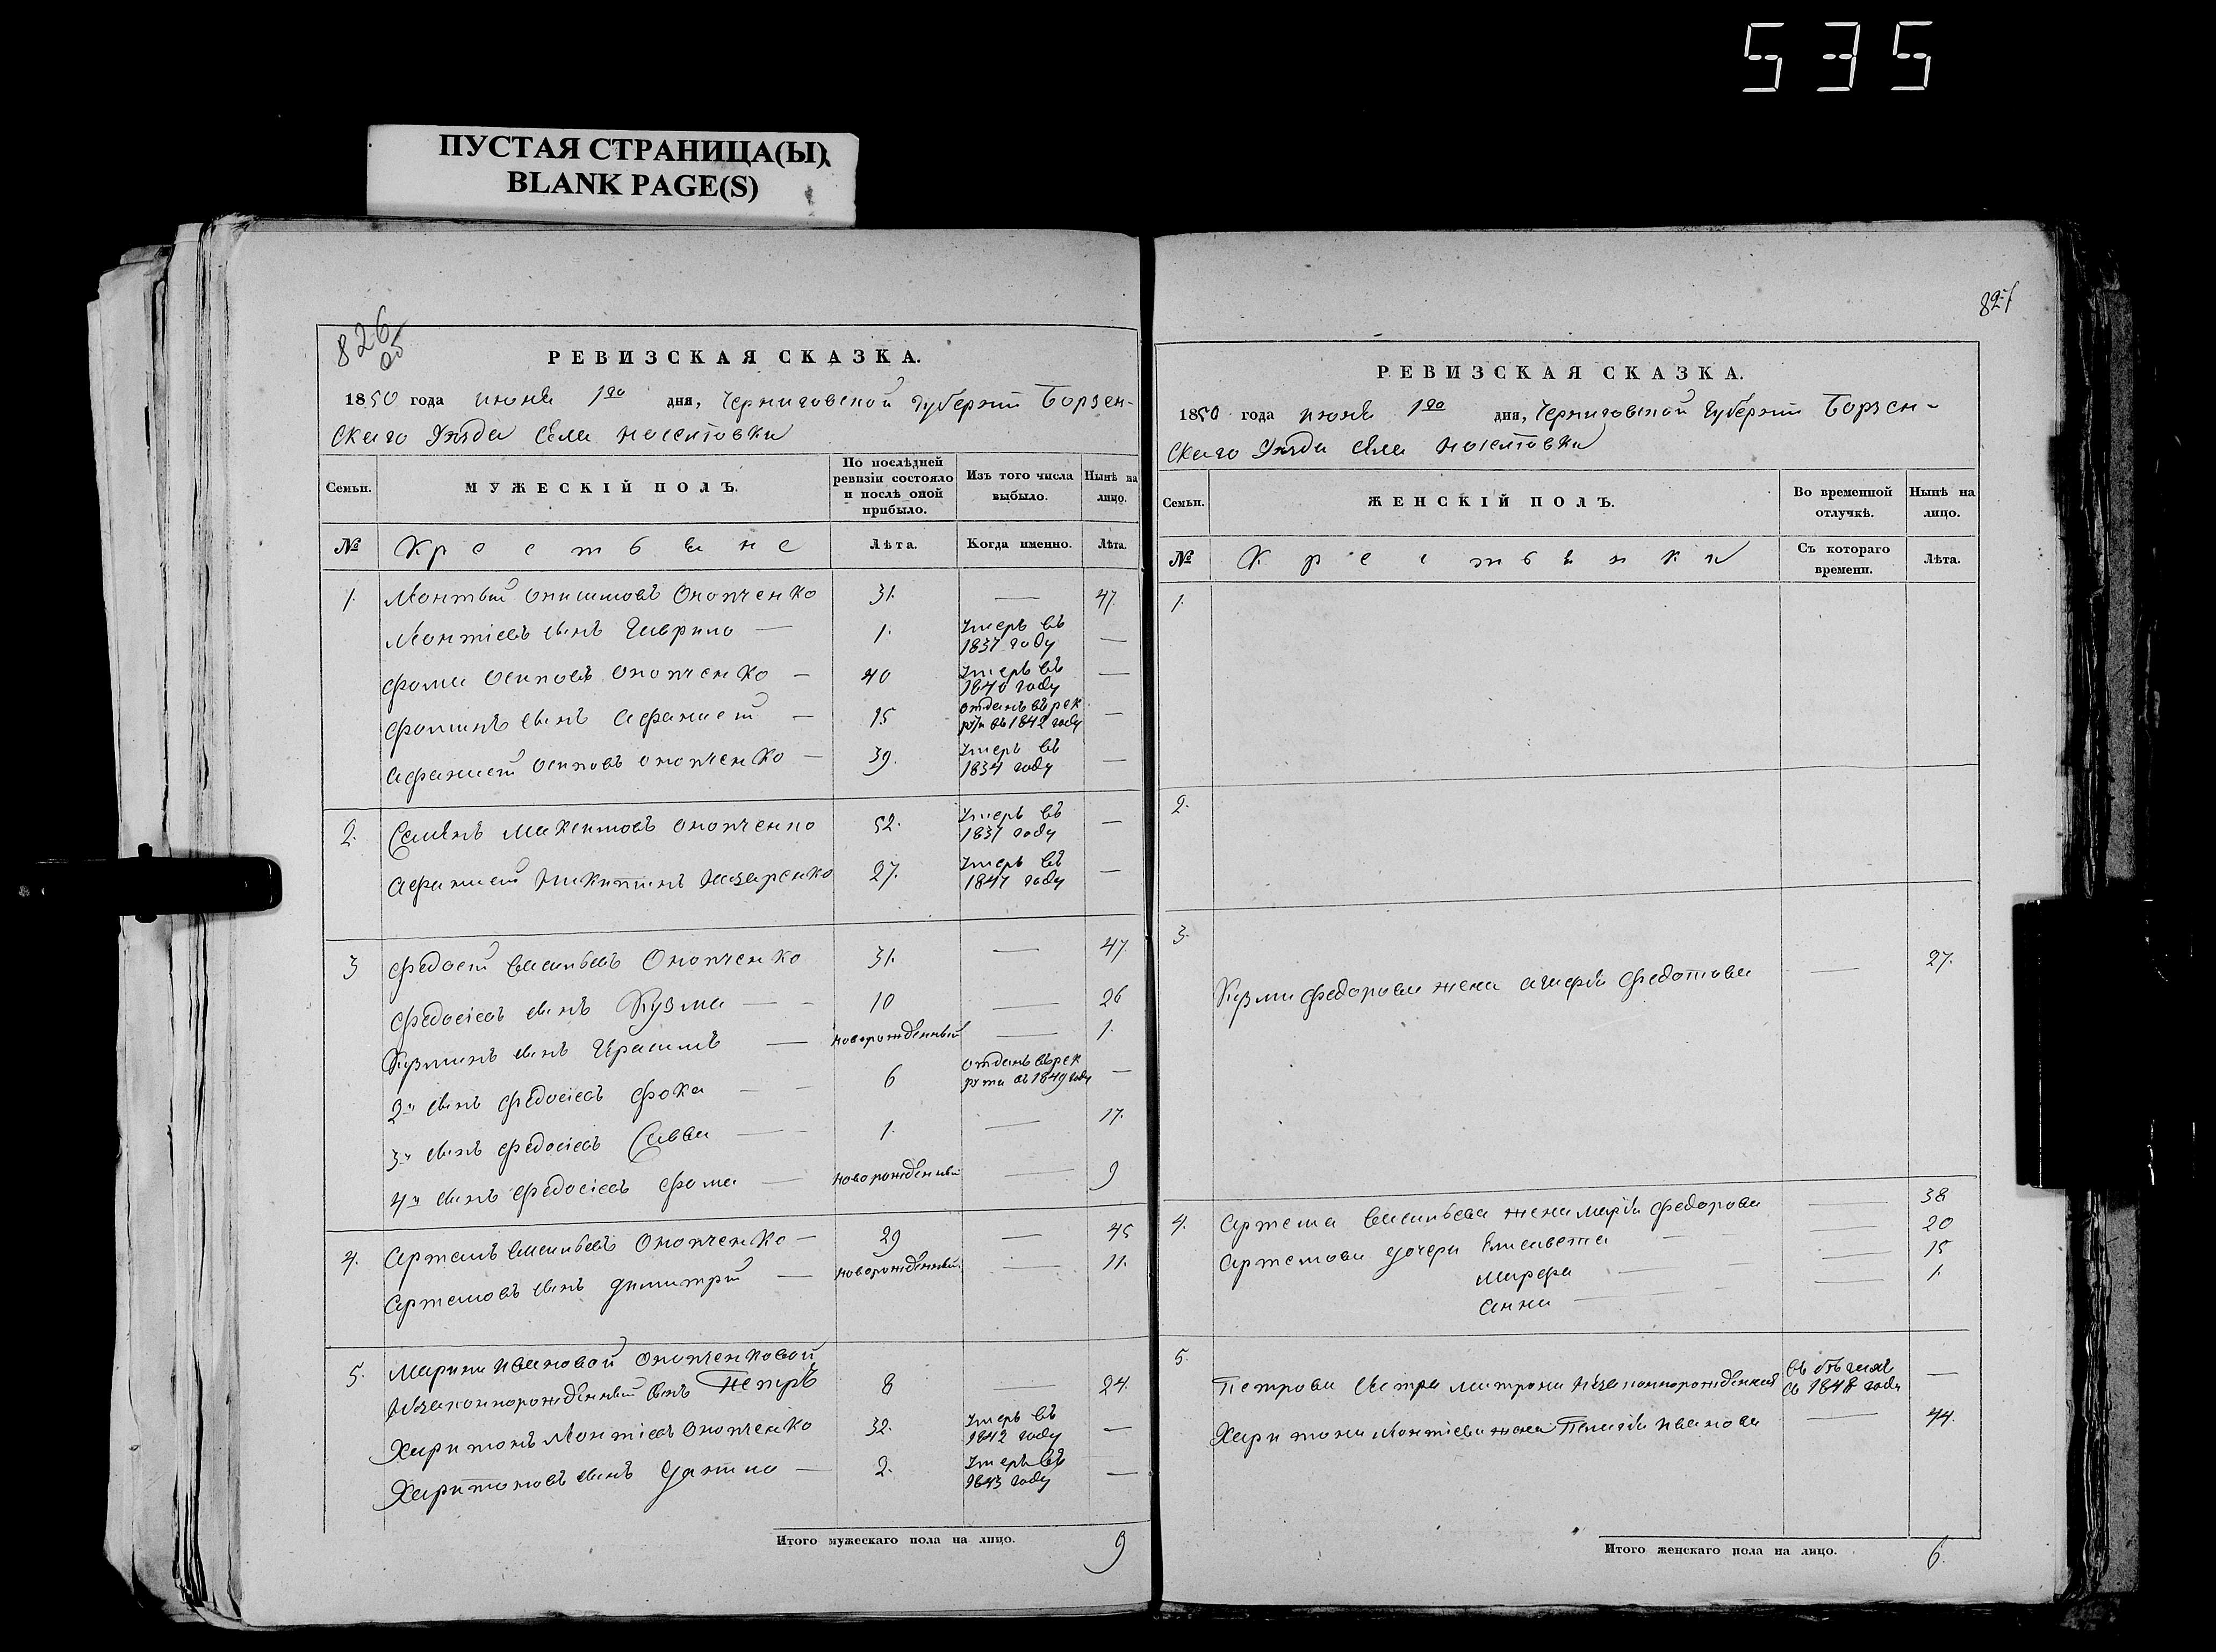 535
ПУСТАЯ СТРАНИЦА(Ы)
BLANK PAGE(S)
826
об
РЕВИЗСКАЯ СКАЗКА.
1850 года июня 1го дня, Черниговской Губернiи Борзен-
скаго Уѣзда Села
Семьи.
МУЖЕСКIЙ ПОЛЪ.
По послѣдней ревизiи состояло и послѣ оной прибыло.
Изъ того числа выбыло.
Нынѣ на лицо.
№ Крестьяне Лѣта. Когда именно. Лѣта.
1. Онопченко 31. — 47.
сынъ Гаврило — 1. Умеръ въ 1837 году —
Фома Осиповъ Онопченко — 40 Умеръ въ 1840 году —
Фоминъ сынъ Афанасiй — 15 отданъ въ рекруты въ 1842 году —
Афанасiй Осиповъ Онопченко — 39. Умеръ въ 1834 году —
2. Семенъ Онопченко 52. Умеръ въ 1837 году —
Афанасiй Никитинъ Назаренко 27. Умеръ въ 1847 году —
3 Федосiй Васильевъ Онопченко 31. — 47.
Федосiевъ сынъ Кузма — 10 — 26
Кузминъ сынъ Герасимъ — новорожденный — 1.
2й сынъ Федосiевъ Фока — 6 отданъ въ рекрута въ 1849 году —
3й сынъ Федосiевъ Савва — 1. — 17.
4й сынъ Федосiевъ Фома — новорожденный — 9
4. Артемъ Васильевъ Онопченко — 29 — 45
Артемовъ сынъ Димитрiй — новорожденный. — 11.
5. Марины Ивановой Онопченковой
Незаконнорожденный сынъ Петръ 8 — 24.
Харитонъ Леонтiевъ Онопченко 32. Умеръ въ 1842 году —
Харитоновъ сынъ — 2. Умеръ въ 1843 году —
Итого мужескаго пола на лицо. 9
827
РЕВИЗСКАЯ СКАЗКА.
1850 года июня 1го дня, Черниговской Губернiи Борзен-
скаго Уѣзда Села
Семьи.
ЖЕНСКIЙ ПОЛЪ.
Во временной отлучкѣ.
Нынѣ на лицо.
№ Крестьянки Съ котораго времени. Лѣта.
1.
2.
3.
Кузмы Федорова жена Агафiя Федотова — 27.
4. Артема Васильева жена Марiя Федорова — 38
Артемова дочери Елисавета — 20
Марфа — 15
Анна — 1.
5.
Петрова сестра Матрона Незаконнорожденная въ бѣгахъ съ 1848 года —
Харитона Леонтiева жена Пелагiя Иванова — 44.
Итого женскаго пола на лицо. 6.